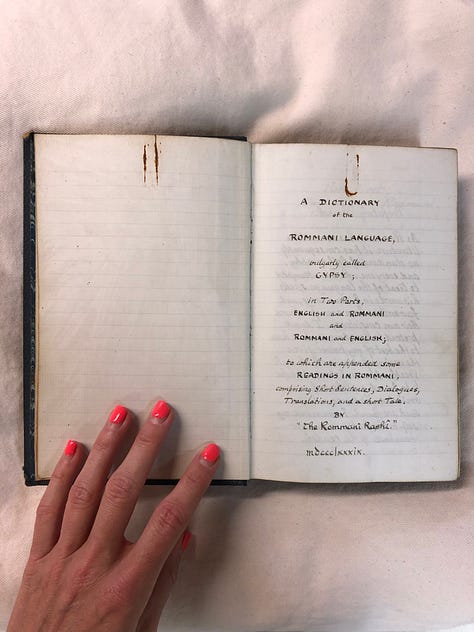 A DICTIONARY
of the
ROMMANI LANGUAGE,
vulgarly called
GYPSY;
in Two Parts,
ENGLISH and ROMMANI
and
ROMMANI and ENGLISH;
to which are appended some
READINGS IN ROMMANI;
comprising Short Sentences, Dialogues,
Translations, and a short Tale,
BY
"The Rommani Rashi."